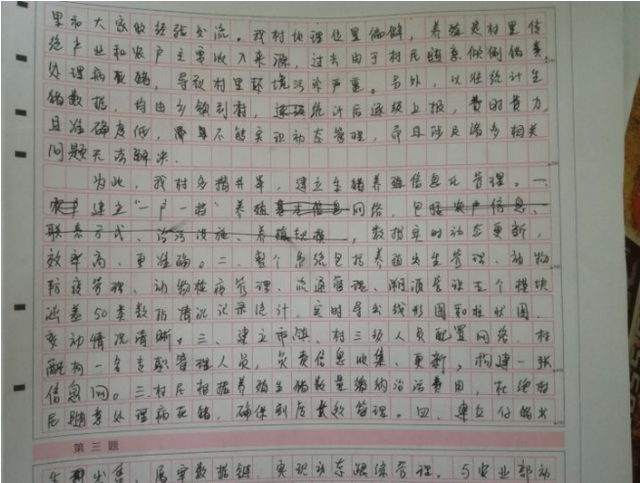 里和大家做经验交流。我村地理位置偏僻，养殖是村里传
统产业和农户主要收入来源，过去由于村民随意倾倒
处理病死猪，导致村里环境污染严重。另外，以往统计生
猪数据，均由乡镇到村，逐级统计后逐级上报，费时费力
且准确度低，不能实现动态管理，而且涉及诸多相关
问题无法解决。
为此，我村多措并举，建立生猪养殖信息化管理。一、
建立“一户一档”养殖基本信息网络，包括农户信息、
联系方式、治污设施、养殖规模，数据实时动态更新，
效率高、更准确。二、整个系统包括养殖出生管理、动物
防疫管理、动物检疫管理、流通管理、溯源管理五个模块
涵盖50类数据情况记录统计，实时导出线形图和柱状图，
变动情况清晰。三、建立市镇、村三级人员配置网络，村
配构一名专职管理人员，负责信息收集、更新，构建一张
信息网。三村民根据养殖生猪数量缴纳治污费用，杜绝村
民随意处理病死猪，确保到户数管理。四、建立仔猪出
第三题
生出售、屠宰数据链，实现动态跟踪管理。与农业部动